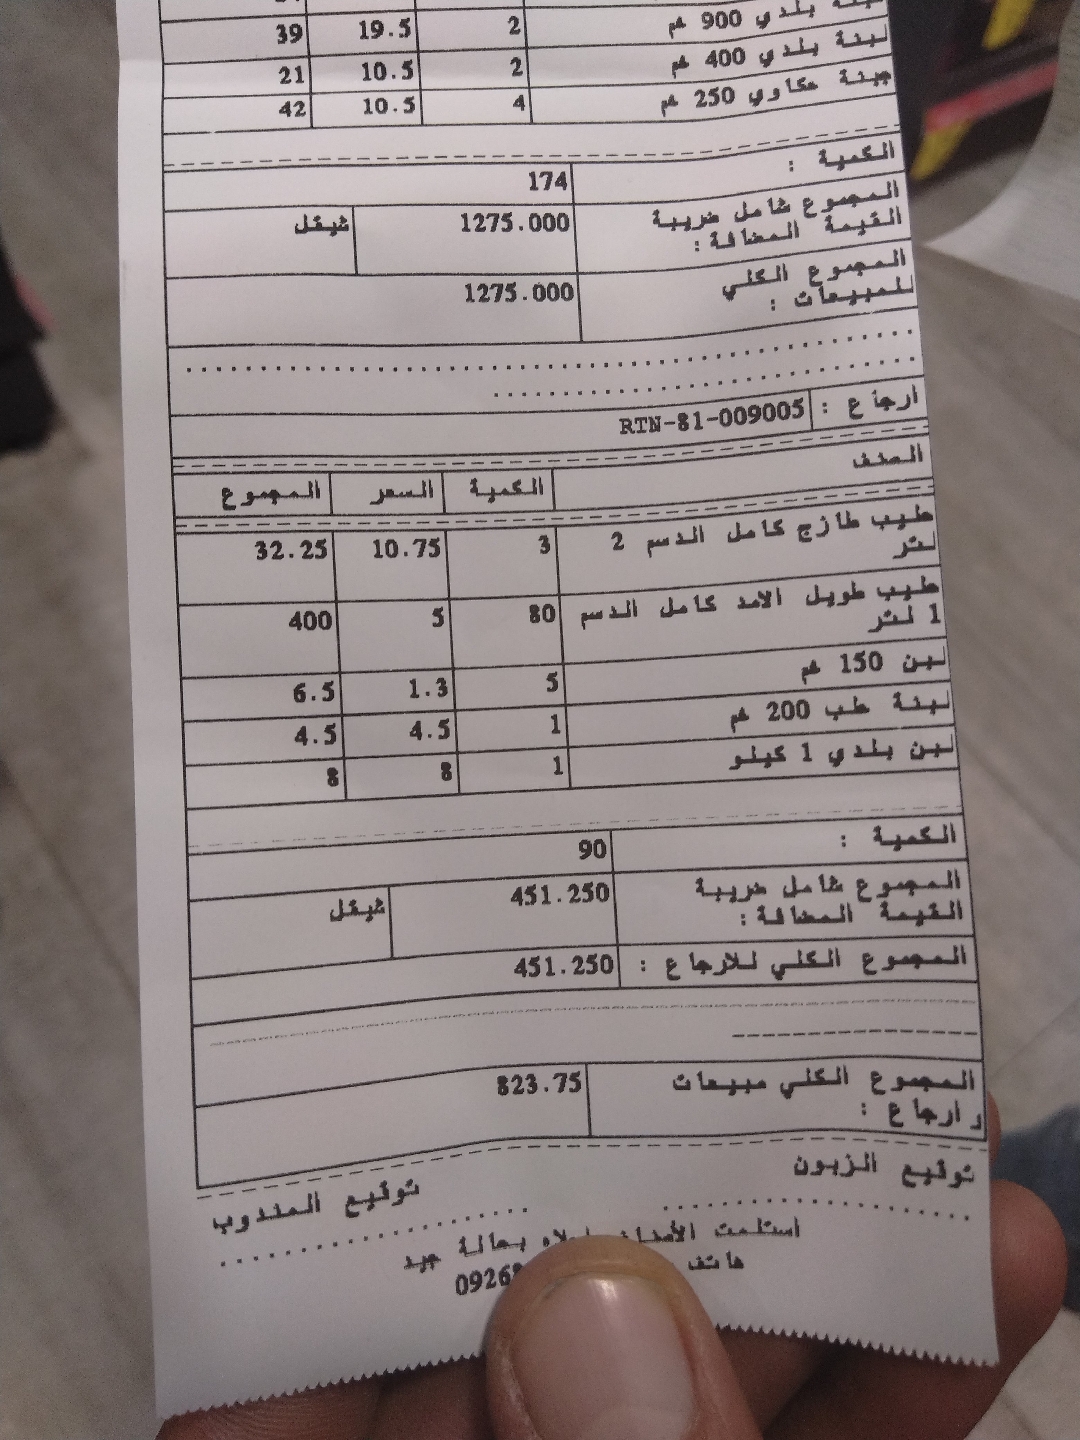 بلدي 900 غم 2 19.5 39
لبنة بلدي 400 غم 2 10.5 21
جبنة عكاوي 250 غم 4 10.5 42
الكمية : 174
المجموع شامل ضريبة 1275.000 شيقل
القيمة المضافة :
المجموع الكلي 1275.000
للمبيعات :
ارجاع : RTN-81-009005
الصنف الكمية السعر المجموع
حليب طازج كامل الدسم 2 3 10.75 32.25
لتر
حليب طويل الامد كامل الدسم 80 5 400
1 لتر
لبن 150 غم 5 1.3 6.5
لبنة طب 200 غم 1 4.5 4.5
لبن بلدي 1 كيلو 1 8 8
الكمية : 90
المجموع شامل ضريبة 451.250 شيقل
القيمة المضافة :
المجموع الكلي للارجاع : 451.250
المجموع الكلي مبيعات 823.75
و ارجاع :
توقيع الزبون توقيع المندوب
استلمت بحالة جيد
هاتف